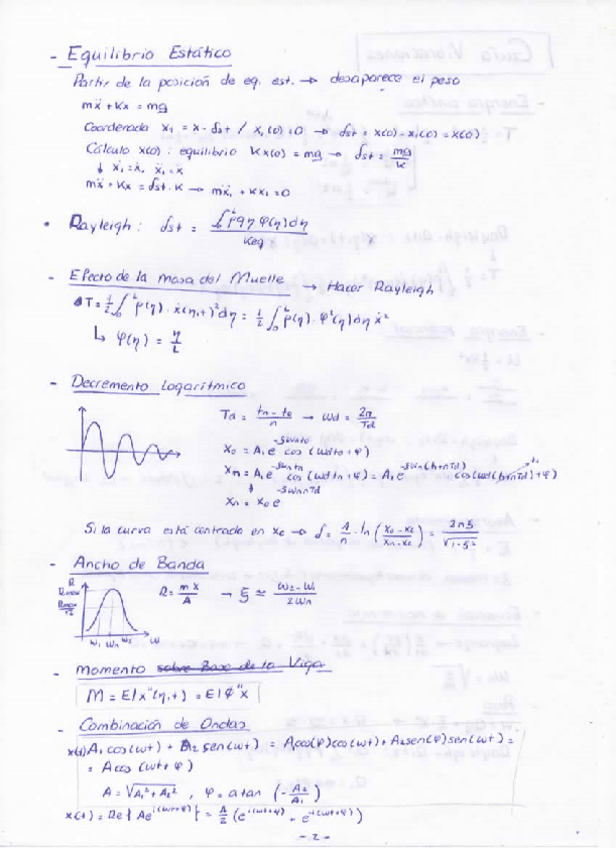 - Equilibrio Estático
Partir de la posición de eq. est. → desaparece el peso
mẍ + Kx = mg
Coordenada x₁ = x - δst / x₁(0) = 0 → δst = x(0) - x₁(0) = x(0)
Cálculo x(0) : equilibrio K x(0) = mg → δst = mg/K
↓ ẋ₁ = ẋ, ẍ₁ = ẍ
mẍ + Kx = δst · K → mẍ₁ + Kx₁ = 0
• Rayleigh : δst = ∫₀ᴸ ρgη φ(η)dη / Keq
- Efecto de la masa del Muelle → Hacer Rayleigh
T = 1/2 ∫₀ᴸ ρ(η) · ẋ(η,t)² dη = 1/2 ∫₀ᴸ ρ(η) · φ²(η) dη ẋ²
↳ φ(η) = η/L
- Decremento Logarítmico
Td = (tn - t0)/n → Wd = 2π/Td
x0 = A₁ e^(-ξwnt0) cos (Wdt0 + φ)
xn = A₁ e^(-ξwntn) cos (Wdtn + φ) = A₁ e^(-ξwn(t0+nTd)) cos(Wd(t0+nTd) + φ)
xn = x0 e^(-ξwnnTd)
Si la curva está centrada en xc → δ = 1/n · ln ((x0 - xc)/(xn - xc)) = 2πξ/√(1-ξ²)
- Ancho de Banda
R
Rmax
Rmax/√2
W₁ Wn W₂ W
R = mX/A → ξ ≃ (W₂ - W₁)/2Wn
- Momento sobre Base de la Viga
M = EIx''(η,t) = EIφ''x
- Combinación de Ondas
x(t) A₁ cos(wt) + A₂ sen(wt) = Acos(φ)cos(wt) + A₂sen(φ)sen(wt) =
= A cos (wt + φ)
A = √(A₁² + A₂²) , φ = atan (-A₂/A₁)
x(t) = Re{ Ae^(i(wt+φ)) } = A/2 (e^(i(wt+φ)) - e^(-i(wt+φ)))
- 2 -